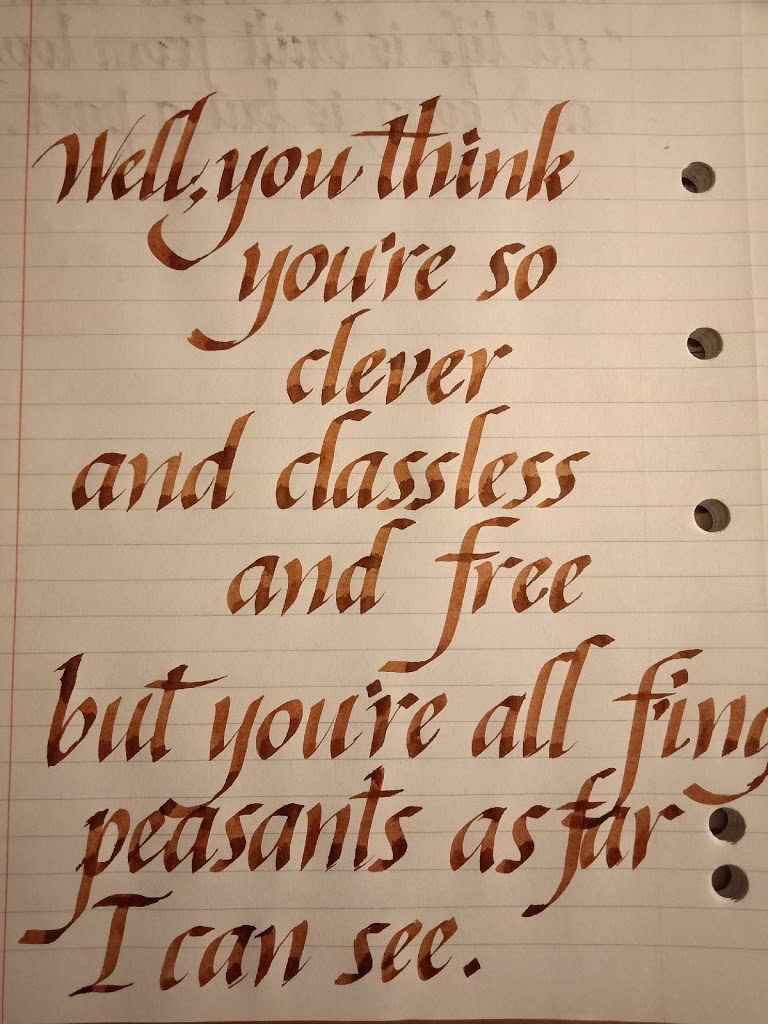 Well, you think
you're so
clever
and classless
and free
but you're all f'ing
peasants as far
I can see.